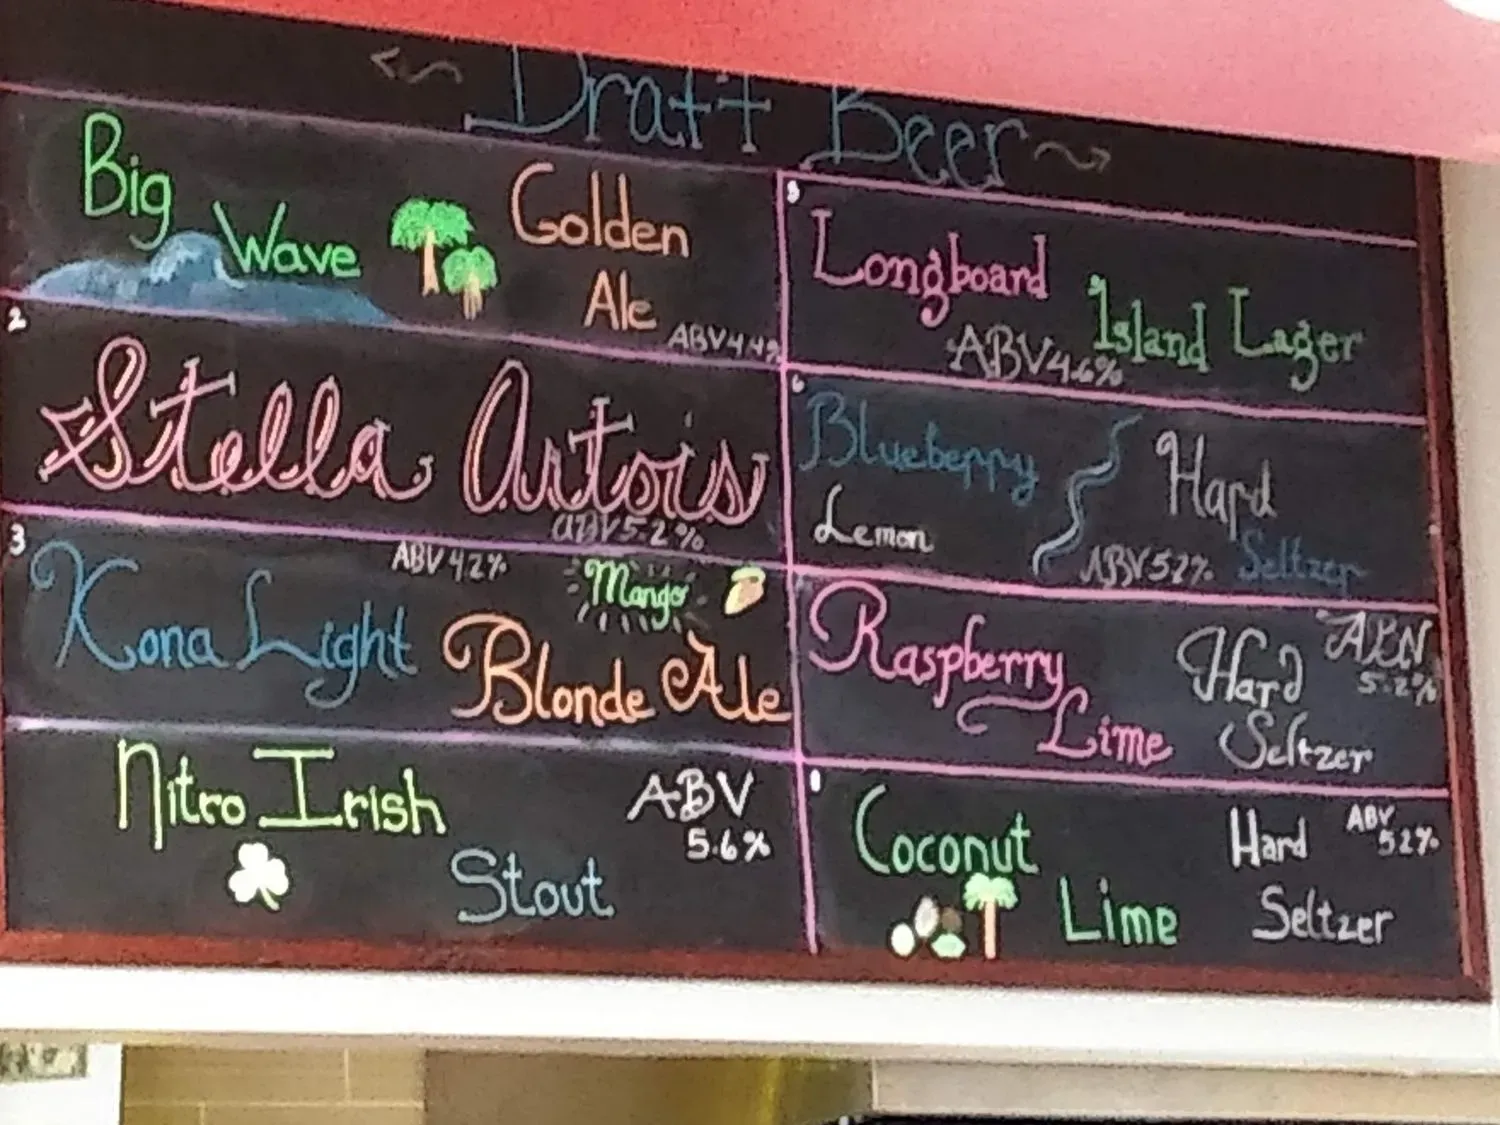 Draft Beer
Big Wave
Golden
Ale
ABV 4.4%
2
Stella Artois
ABV 5.2%
3
ABV 4.2%
Mango
Kona Light
Blonde Ale
Nitro Irish
Stout
ABV
5.6%
5
Longboard
Island Lager
ABV 4.6%
6
Blueberry
Lemon
Hard
Seltzer
ABV 5.2%
Raspberry
Lime
Hard
Seltzer
ABV
5.2%
8
Coconut
Lime
Hard
Seltzer
ABV
5.2%